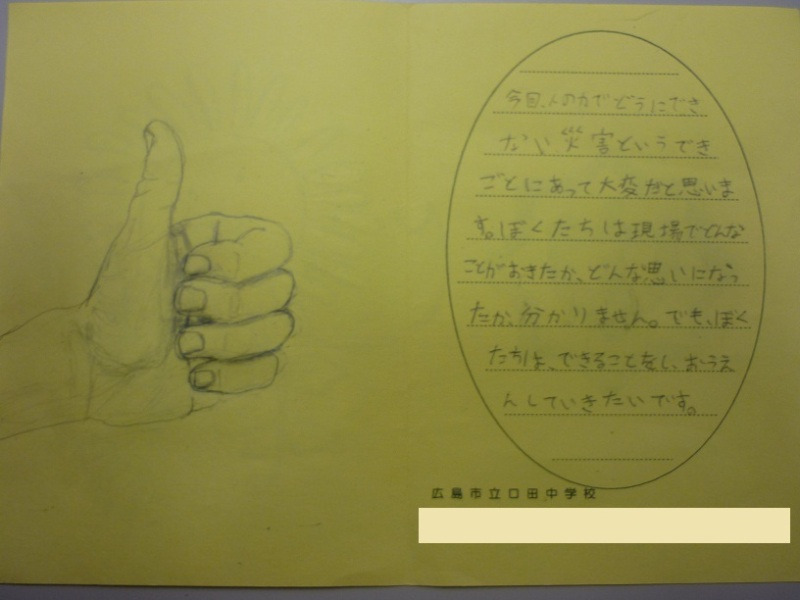 今回、人の力でどうにでき
ない災害というでき
ごとにあって大変だと思いま
す。ぼくたちは現場でどんな
ことがおきたか、どんな思いになっ
たか、分かりません。でも、ぼく
たちは、できることをし、おうえ
んしていきたいです。
広島市立口田中学校